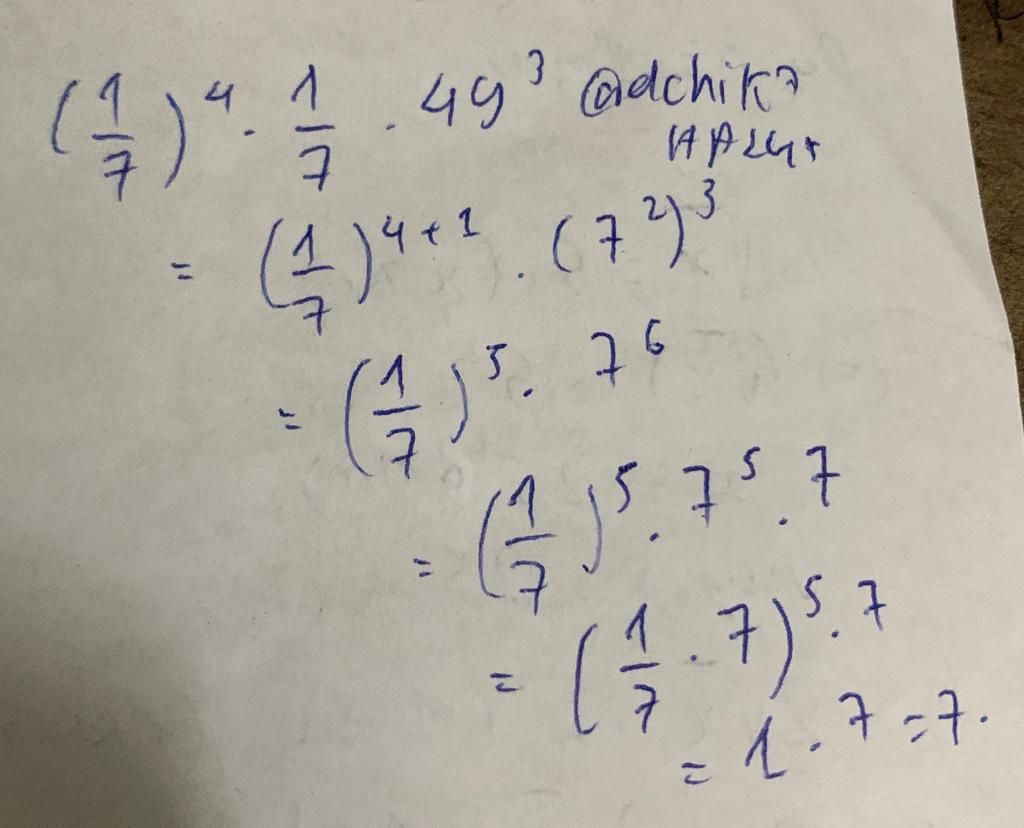 (1/7)^4 . 1/7 . 49^3 @dchik7
= (1/7)^4+1 . (7^2)^3
= (1/7)^5 . 7^6
= (1/7)^5 . 7^5 . 7
= (1/7 . 7)^5 . 7
= 1 . 7 = 7.